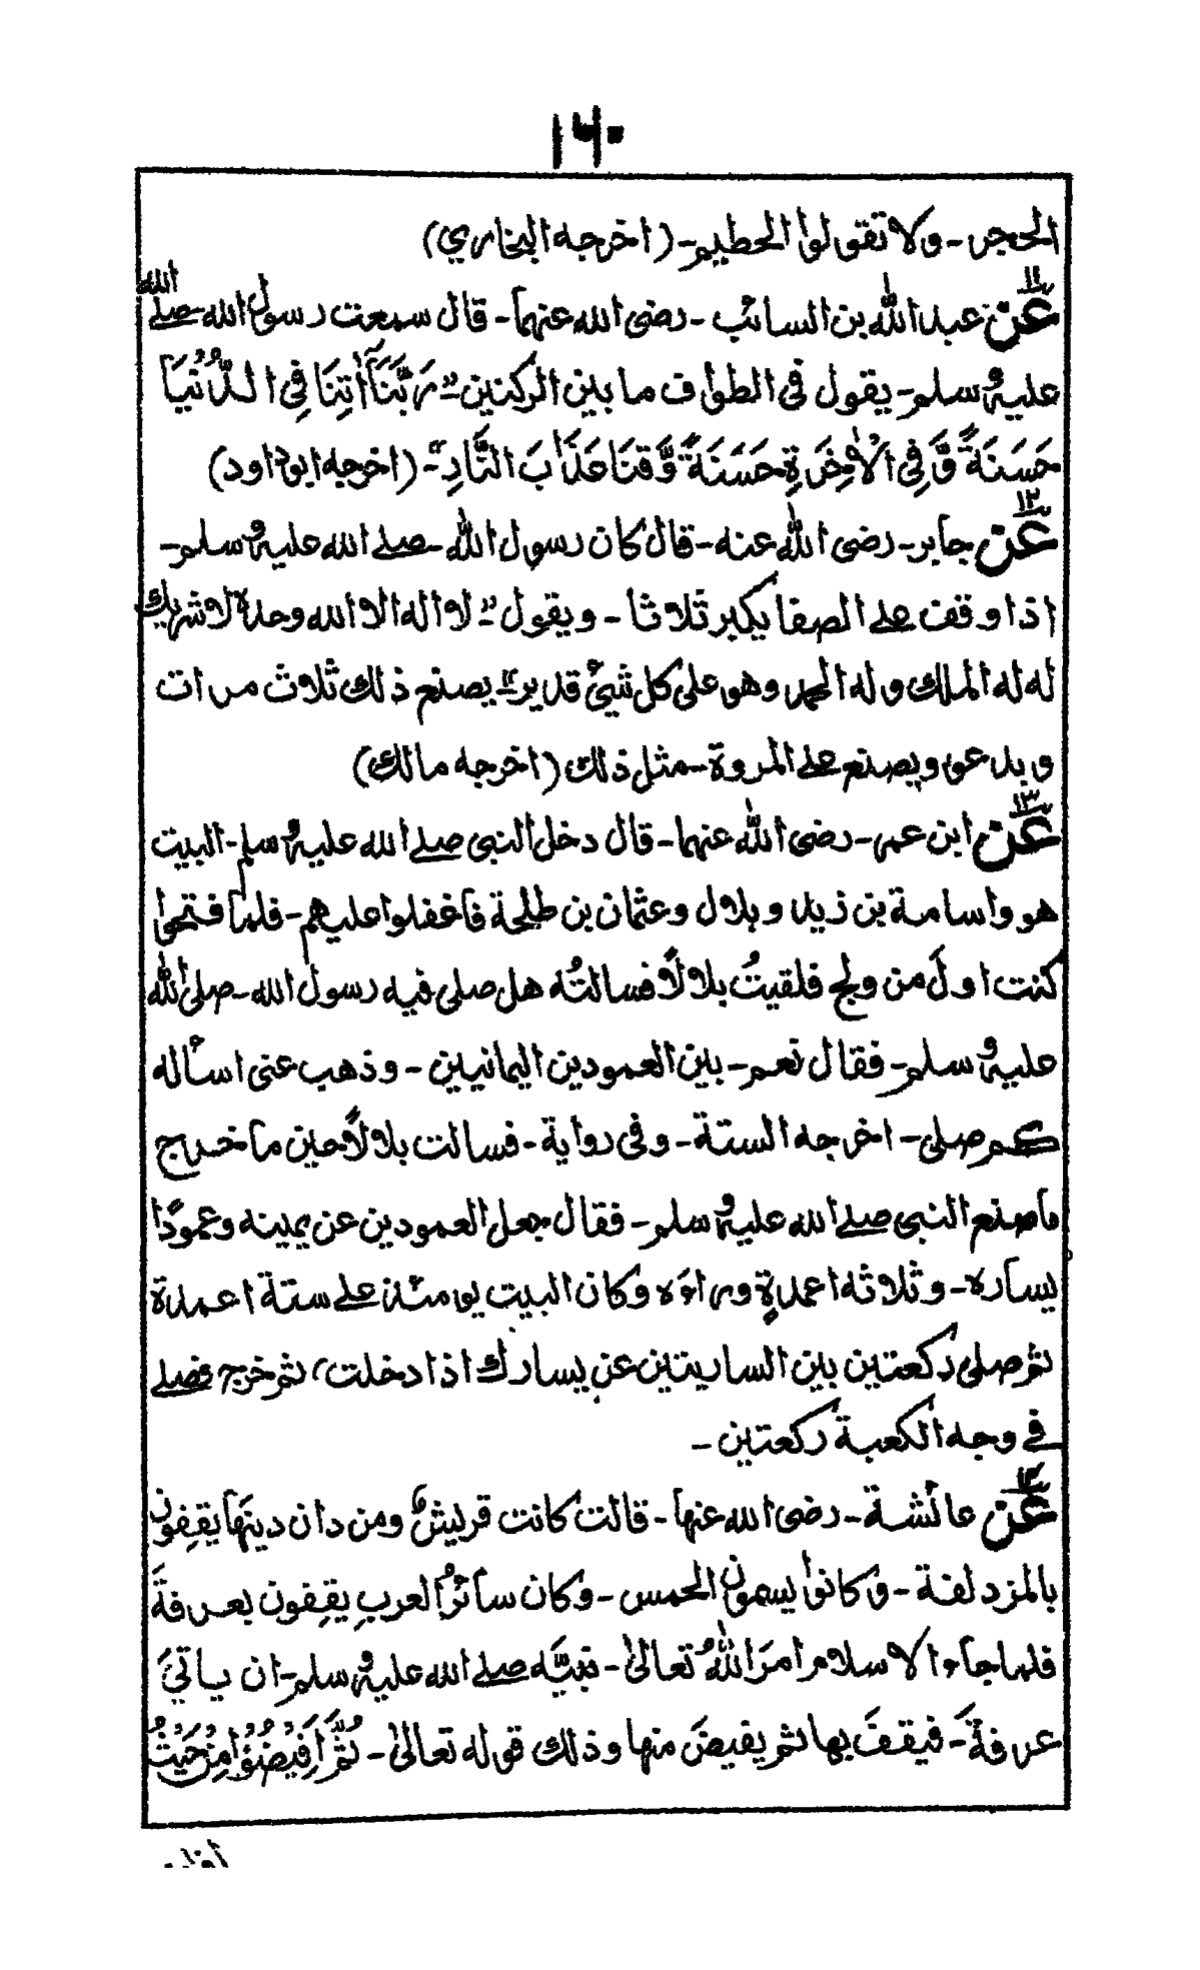 ۱۴۰
الحجر - ولا تقولوا الحطيم - (اخرجه البخاري)
۱۱ عن عبد الله بن السائب - رضى الله عنهما - قال سمعت رسول الله صلے الله
عليه وسلم - يقول فى الطواف ما بين الركنين " رَبَّنَا آتِنَا فِى الدُّنْيَا
حَسَنَةً وَّفِى الْاٰخِرَةِ حَسَنَةً وَّقِنَا عَذَابَ النَّارِ " - (اخرجه ابوداود)
۱۲ عن جابر - رضى الله عنه - قال كان رسول الله - صلے الله عليه وسلم -
اذا وقف علے الصفا يكبر ثلاثا - ويقول " لا اله الا الله وحده لا شريك
له له الملك وله الحمد وهو على كل شيئ قدير " يصنع ذلك ثلاث مرات
ويدعو ويصنع علے المروة - مثل ذلك (اخرجه مالك)
۱۳ عن ابن عمر - رضى الله عنهما - قال دخل النبى صلے الله عليه وسلم - البيت
هو واسامة بن زيد وبلال وعثمان بن طلحة فاغفلوا عليهم - فلما فتحوا
كنت اولَ من ولج فلقيتُ بلالاً فسالتُه هل صلى فيه رسول الله - صلى الله
عليه وسلم - فقال نعم - بين العمودين اليمانيين - وذهب عنى اسأله
كم صلى - اخرجه الستة - وفى رواية - فسالت بلالاً حين ما خرج
ما صنع النبى صلے الله عليه وسلم - فقال جعل العمودين عن يمينه وعمودًا
يساره - وثلاثه اعمدةٍ وراءَه وكان البيت يومئذ علے ستة اعمدة
ثم صلى ركعتين بين الساريتين عن يسارك اذا دخلت، ثم خرج فصلے
فے وجه الكعبة ركعتين -
۱۴ عن عائشة - رضى الله عنها - قالت كانت قريشٌ ومن دان دينَها يقفِفون
بالمزدلفة - وكانوا يسمون الحمس - وكان سائرُ العرب يقِفون بعرفةَ
فلما جاء الاسلام امرَ اللهُ تعالىٰ - نبيَّه صلے الله عليه وسلم - ان ياتيَ
عرفةَ - فيقفَ بها ثم يفيضَ منها وذلك قوله تعالىٰ - ثُمَّ اَفِيْضُوْا مِنْ حَيْثُ